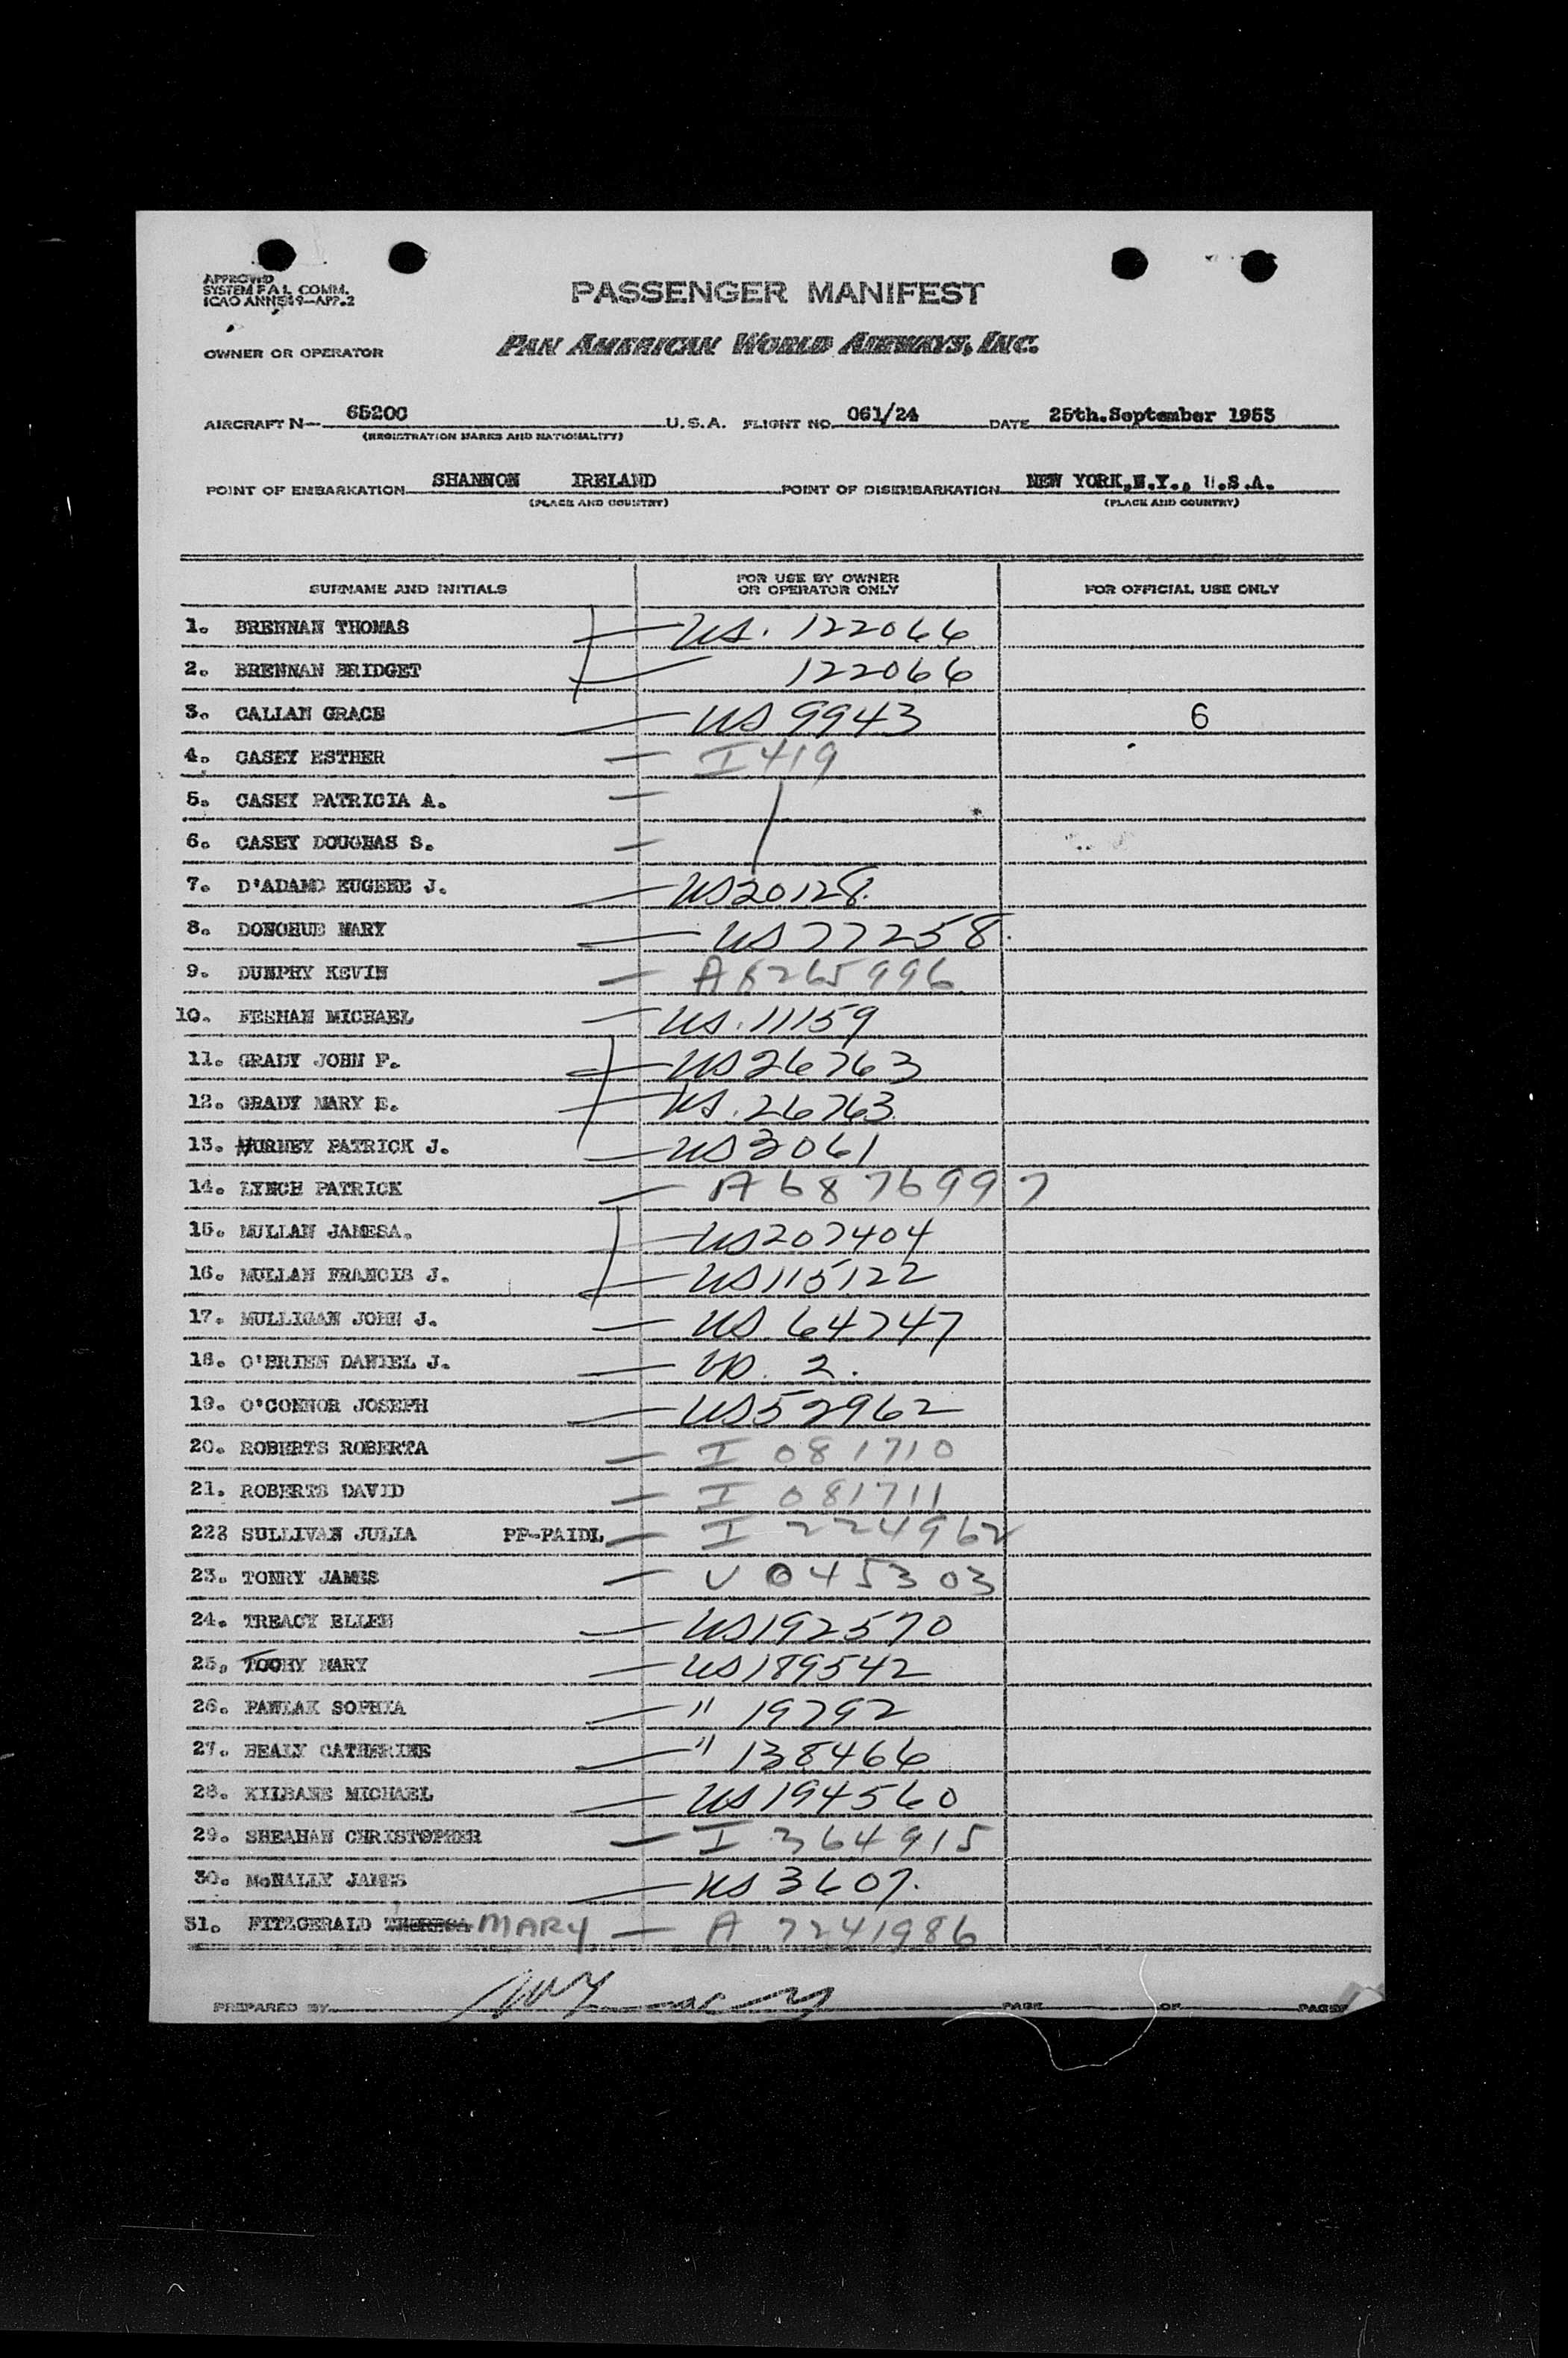 APPROVED
SYSTEM F.A.L. COMM.
ICAO ANNEX 9—APP. 2
PASSENGER MANIFEST
OWNER OR OPERATOR PAN AMERICAN WORLD AIRWAYS, INC.
AIRCRAFT N— 65200 U.S.A. FLIGHT NO. 061/24 DATE 25th.September 1953
(REGISTRATION MARKS AND NATIONALITY)
POINT OF EMBARKATION SHANNON IRELAND POINT OF DISEMBARKATION NEW YORK,N.Y., U.S.A.
(PLACE AND COUNTRY) (PLACE AND COUNTRY)
SURNAME AND INITIALS FOR USE BY OWNER OR OPERATOR ONLY FOR OFFICIAL USE ONLY
1. BRENNAN THOMAS — US. 122066
2. BRENNAN BRIDGET — 122066
3. CALLAN GRACE — US 9943 6
4. CASEY ESTHER — I 419
5. CASEY PATRICIA A. —
6. CASEY DOUGHAS S. —
7. D'ADAMO EUGENE J. — US20128.
8. DONOHUE MARY — US 77258.
9. DUNPHY KEVIN — A8265996
10. FEEHAN MICHAEL — US. 11159
11. GRADY JOHN P. — US26763
12. GRADY MARY E. — US. 26763
13. HURNEY PATRICK J. — US3061
14. LYNCH PATRICK — A6876997
15. MULLAN JAMESA. — US207404
16. MULLAN FRANCIS J. — US115122
17. MULLIGAN JOHN J. — US 64747
18. O'BRIEN DANIEL J. — 2.
19. O'CONNOR JOSEPH — US52962
20. ROBERTS ROBERTA — I 081710
21. ROBERTS DAVID — I 081711
223 SULLIVAN JULIA PP-PAIDL — I 224962
23. TONRY JAMES — V 045303
24. TREACY ELLEN — US192570
25. TOOHY MARY — US189542
26. PAWLAK SOPHIA — " 19792
27. HEALY CATHERINE — " 138466
28. KILBANE MICHAEL — US194560
29. SHEAHAN CHRISTOPHER — I 364915
30. McNALLY JAMES — US 3607.
31. FITZGERALD THERESA MARY — A 7241986
PREPARED BY PAGE OF PAGES